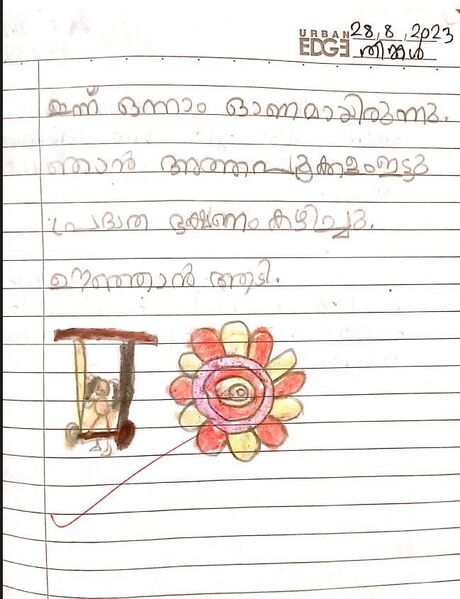 URBAN
EDGE
28,8,2023
തിങ്കൾ
ഇന്ന് ഒന്നാം ഓണമായിരുന്നു.
ഞാൻ അത്തപൂക്കളംഇട്ടു
പ്രഭാത ഭക്ഷണം കഴിച്ചു.
ഊഞ്ഞാൻ ആടി.